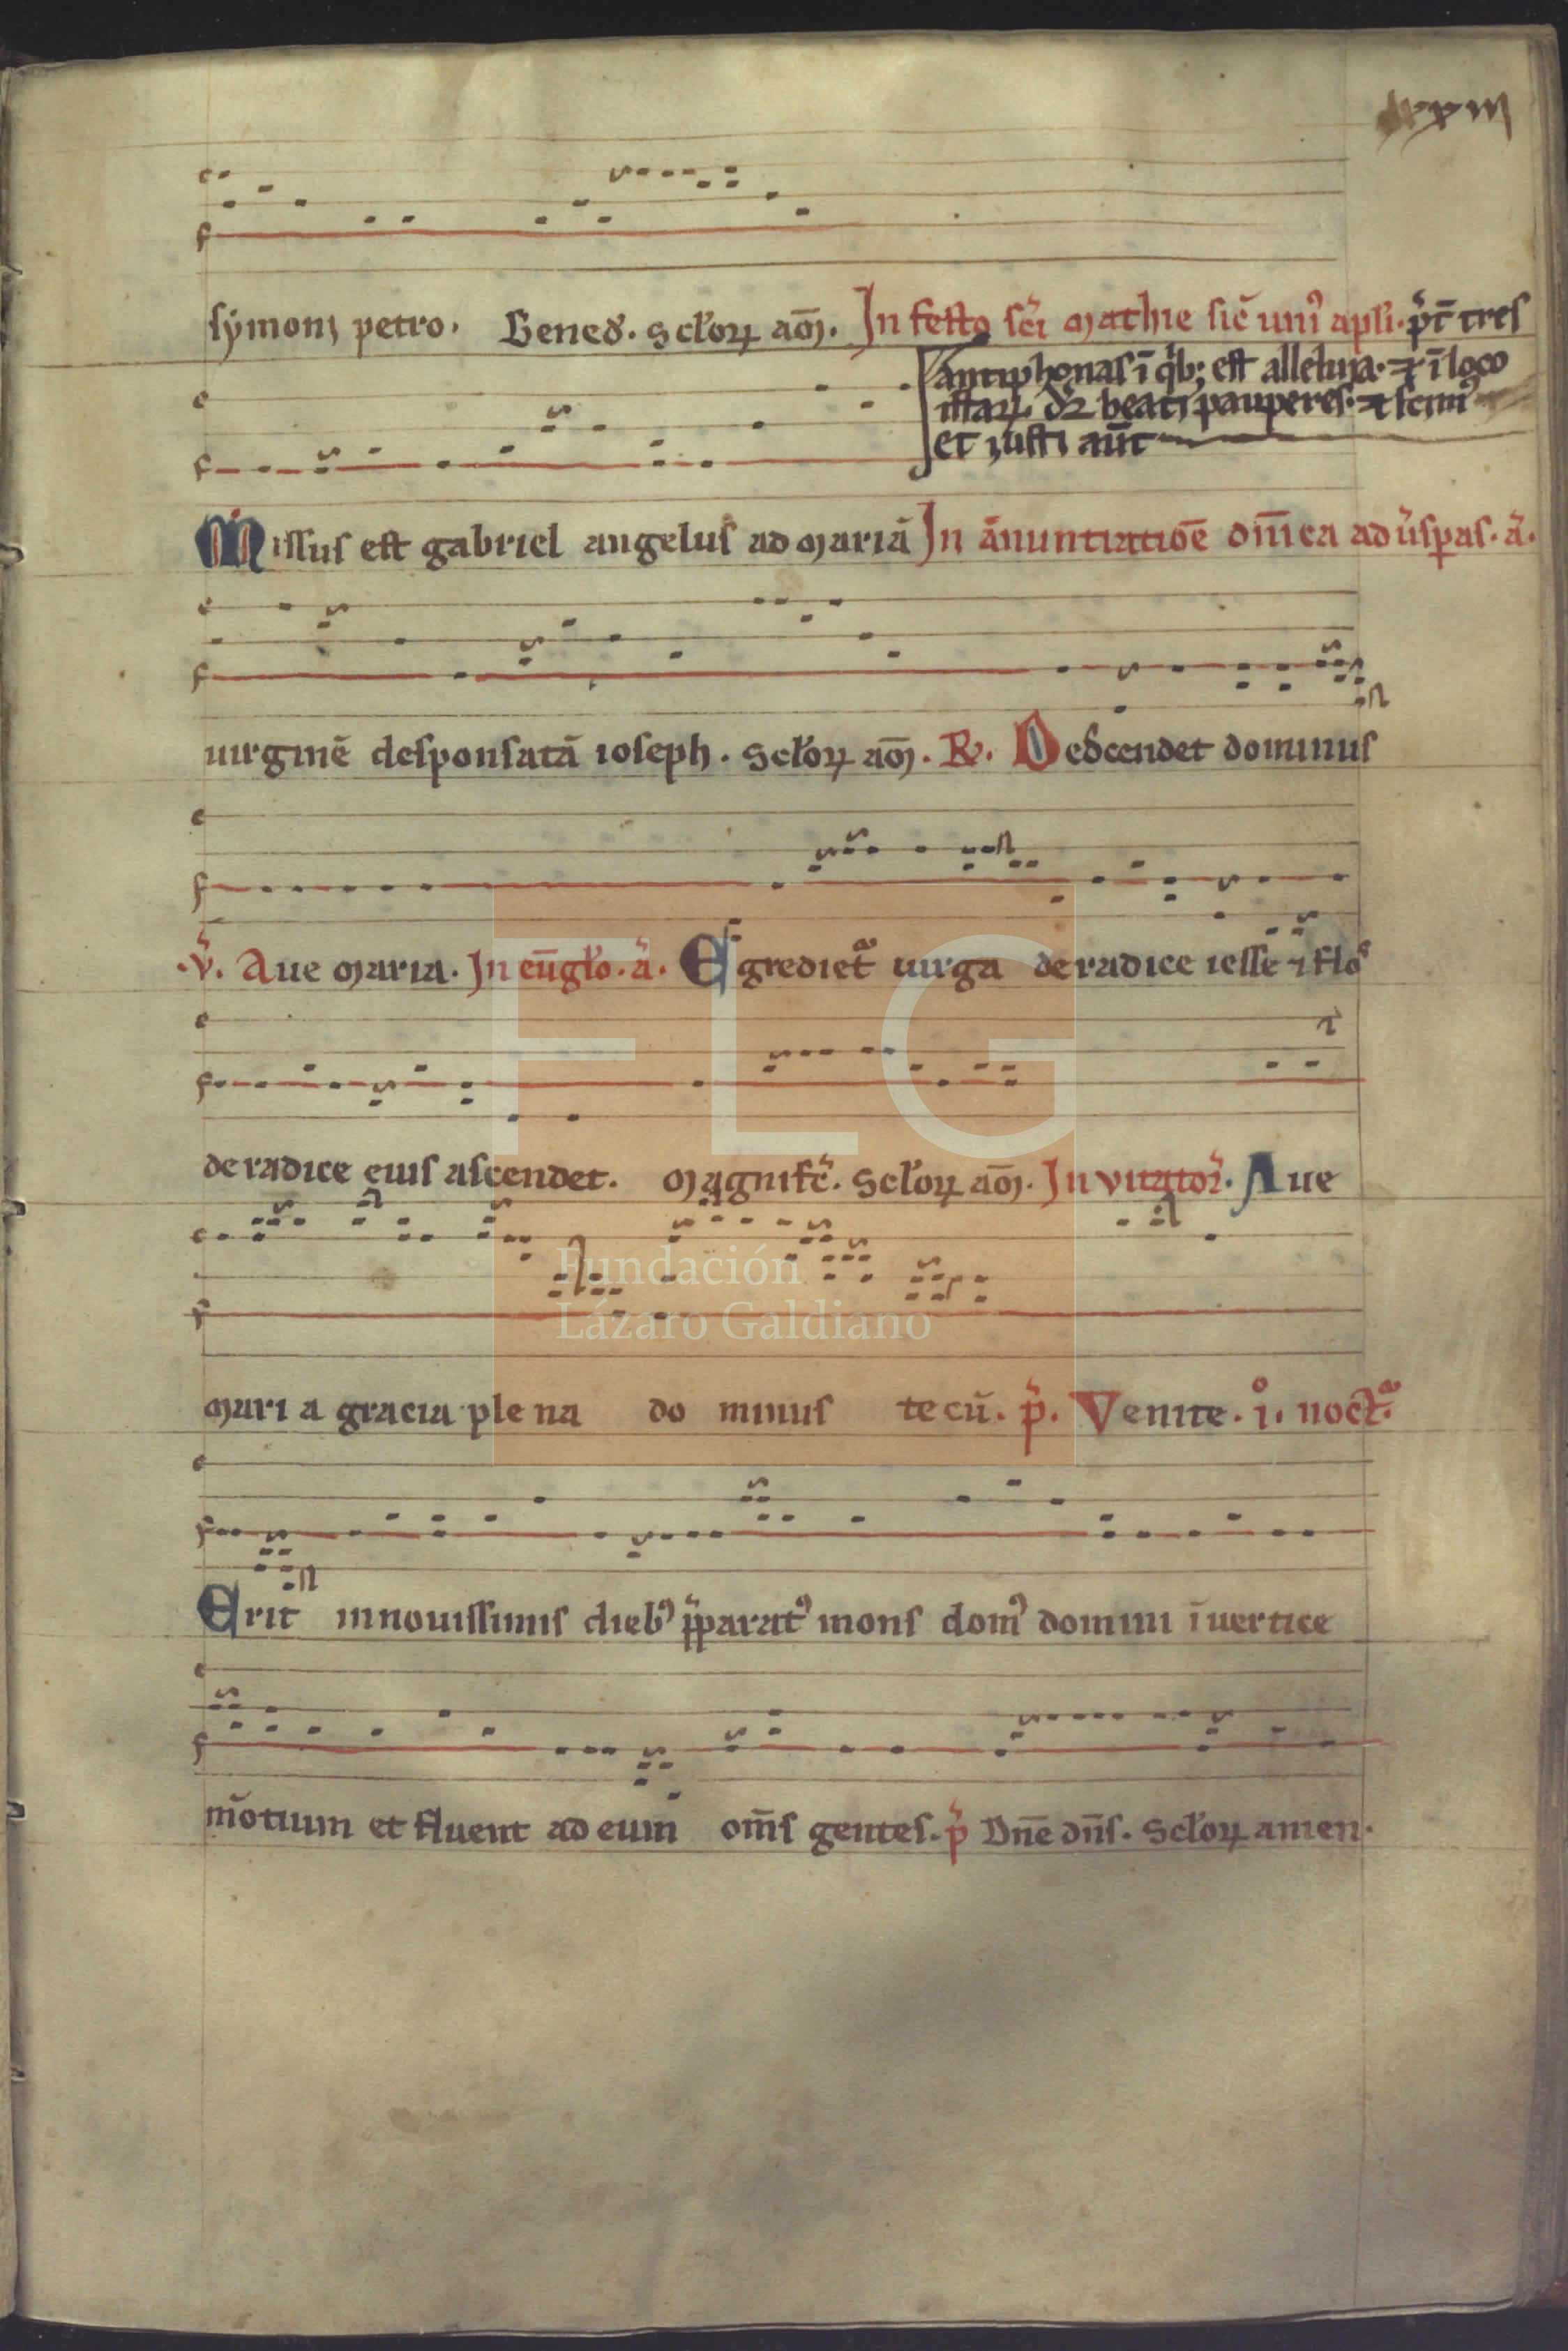 lxxiii
symoni petro. Bened. Sclorꝝ am̄. In festo sc̄i mathie sic̄ uniꝰ apl̓i. p̄t tres
antiphonas ī qb; est alleluia. ⁊ ī loco
istarꝝ. dr̄ beati pauperes. ⁊ scimꝰ
et iusti aūt
Missus est gabriel angelus ad mariā In ānuntiatiōe dn̄ica ad ūsꝑas. ā.
uirginē desponsatā ioseph. Sclorꝝ am̄. R. Descendet dominus
v̓. Aue maria. In eūglo. ā. Egrediet᷑ uirga de radice iesse ⁊ flos
de radice eius ascendet. magnific̄. Sclorꝝ am̄. Invitator̓. Aue
mari a gracia ple na do minus te cū. p̓. Venite. i. noct̓.
Erit in nouissimis diebꝰ p̄paratꝰ mons domꝰ domini ī uertice
mōtium et fluent ad eum om̄s gentes. p̓ Dn̄e dn̄s. Sclorꝝ amen.
FLG
Fundación
Lázaro Galdiano